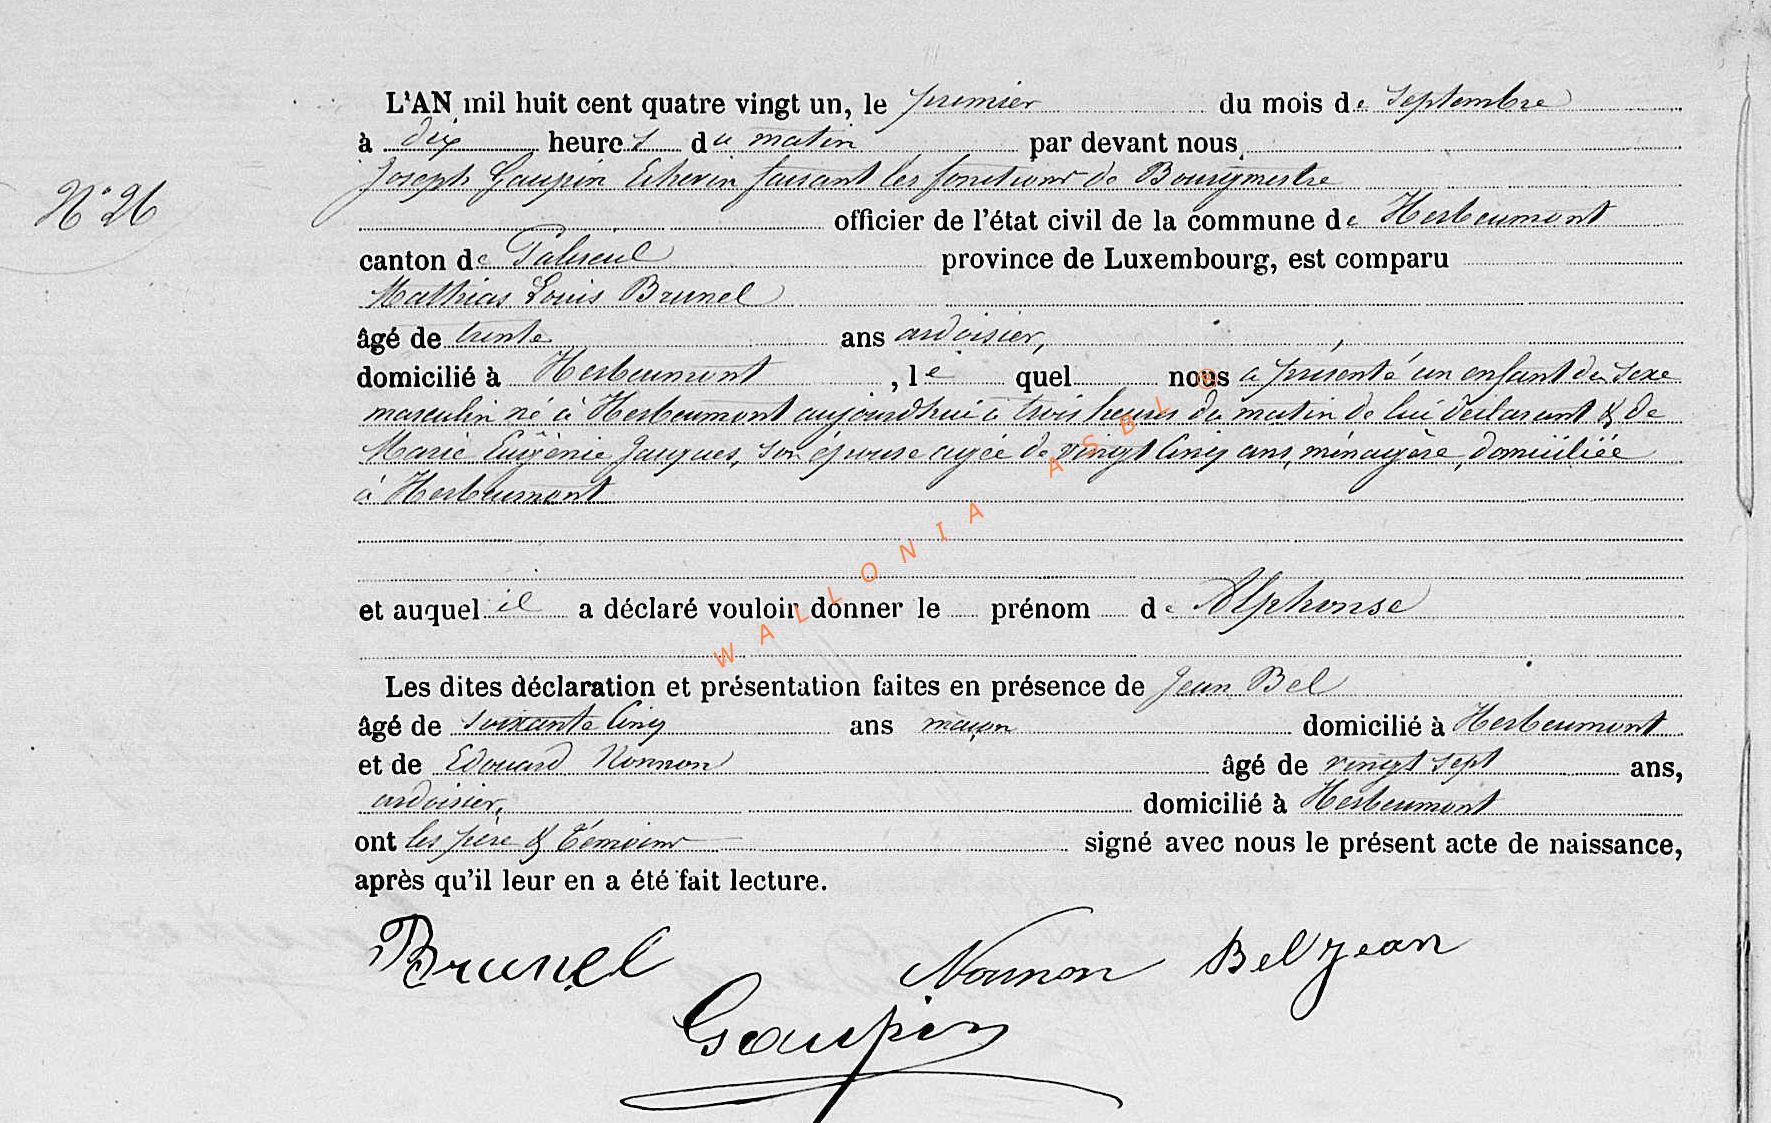 L'AN mil huit cent quatre vingt un, le premier du mois de Septembre
à dix heures du matin par devant nous,
Joseph Gaupin Echevin faisant les fonctions de Bourgmestre
N° 26
officier de l'état civil de la commune de Herbeumont
canton de Paliseul province de Luxembourg, est comparu
Mathias Louis Brunel
âgé de trente ans ardoisier,
domicilié à Herbeumont, le quel nous a présenté un enfant du sexe
masculin né à Herbeumont aujourd'hui à trois heures du matin de lui déclarant & de
Marie Eugènie Jacques, son épouse agée de vingt cinq ans, ménagère, domiciliée
à Herbeumont
et auquel il a déclaré vouloir donner le prénom de Alphonse
Les dites déclaration et présentation faites en présence de Jean Bel
âgé de soixante cinq ans maçon domicilié à Herbeumont
et de Edouard Nonnon âgé de vingt sept ans,
ardoisier, domicilié à Herbeumont
ont les père & témoins signé avec nous le présent acte de naissance,
après qu'il leur en a été fait lecture.
Brunel Nonnon Bel Jean
Gaupin
WALLONIA ASBL ©